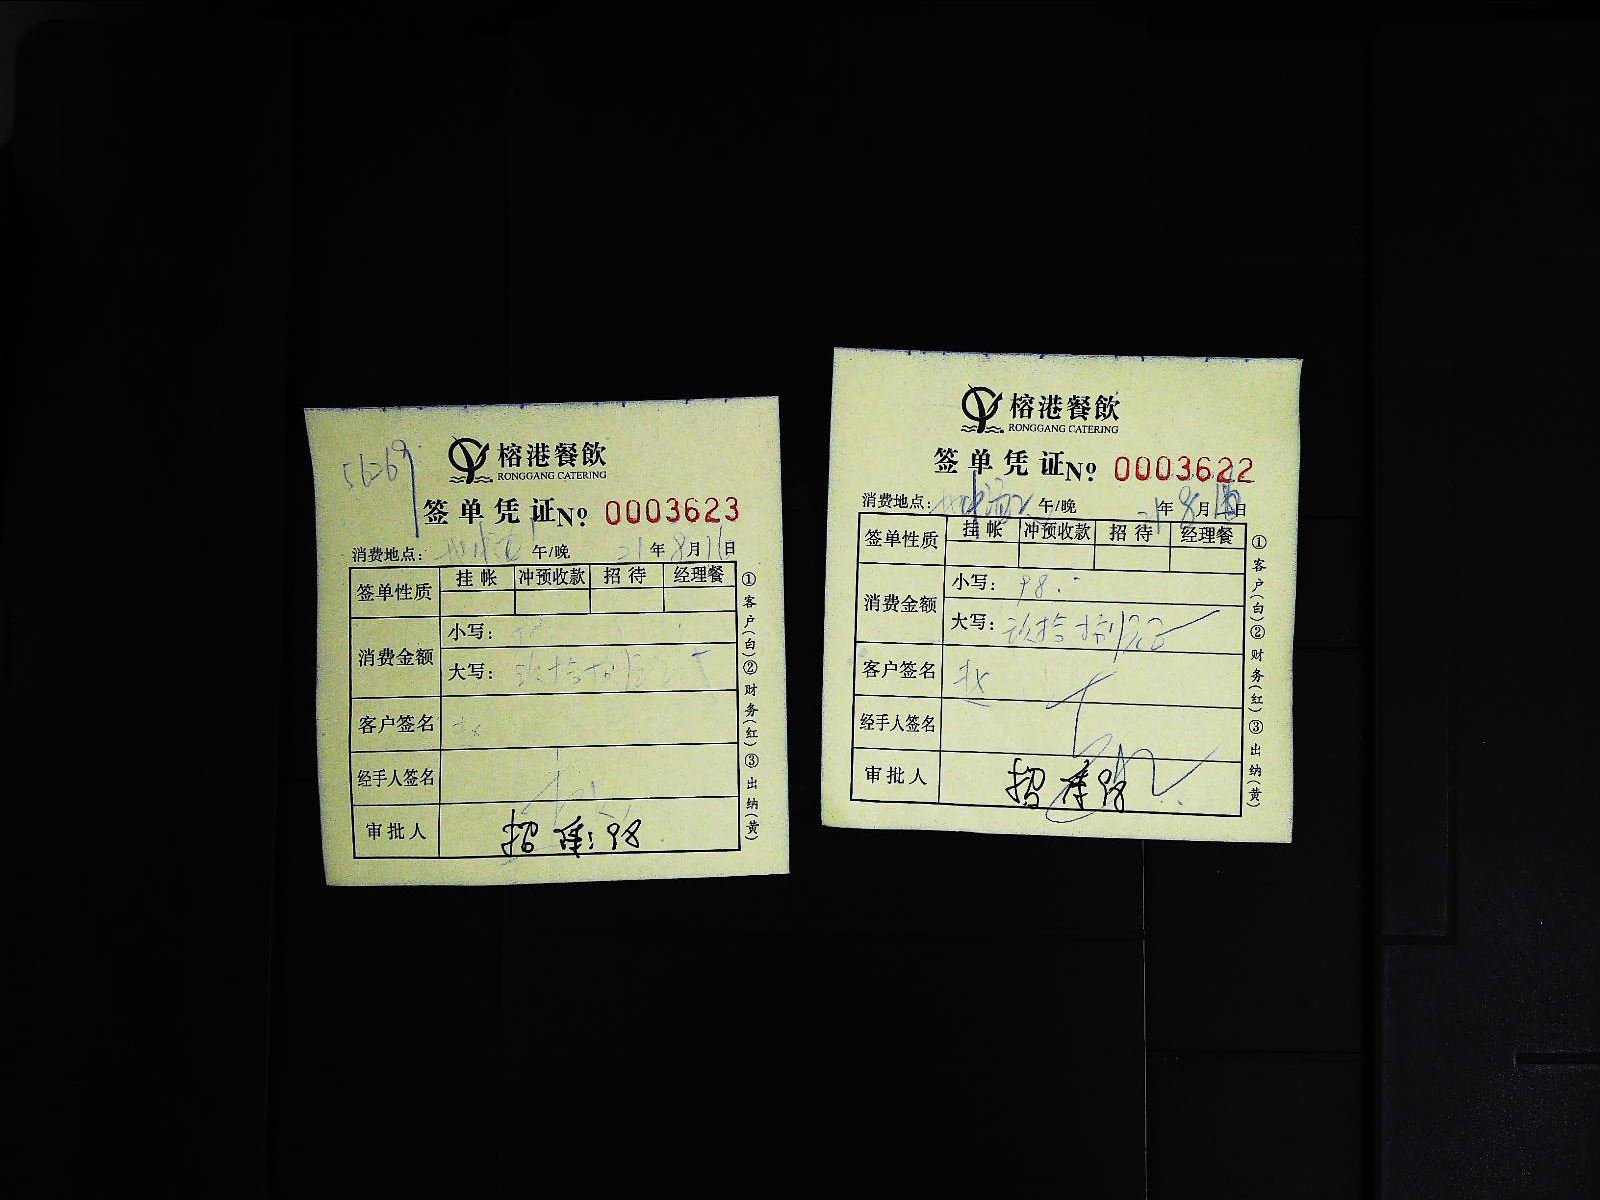 56269
榕港餐飲
RONGGANG CATERING
签单凭证 № 0003623
消费地点： 午/晚 21年8月16日
签单性质 挂帐 冲预收款 招待 经理餐
消费金额 小写：
大写：玖拾
客户签名
经手人签名
审批人 招待：98
①客户（白）②财务（红）③出纳（黄）
榕港餐飲
RONGGANG CATERING
签单凭证 № 0003622
消费地点： 午/晚 21年8月 日
签单性质 挂帐 冲预收款 招待 经理餐
消费金额 小写：98.
大写：玖拾捌
客户签名
经手人签名
审批人 招待98
①客户（白）②财务（红）③出纳（黄）